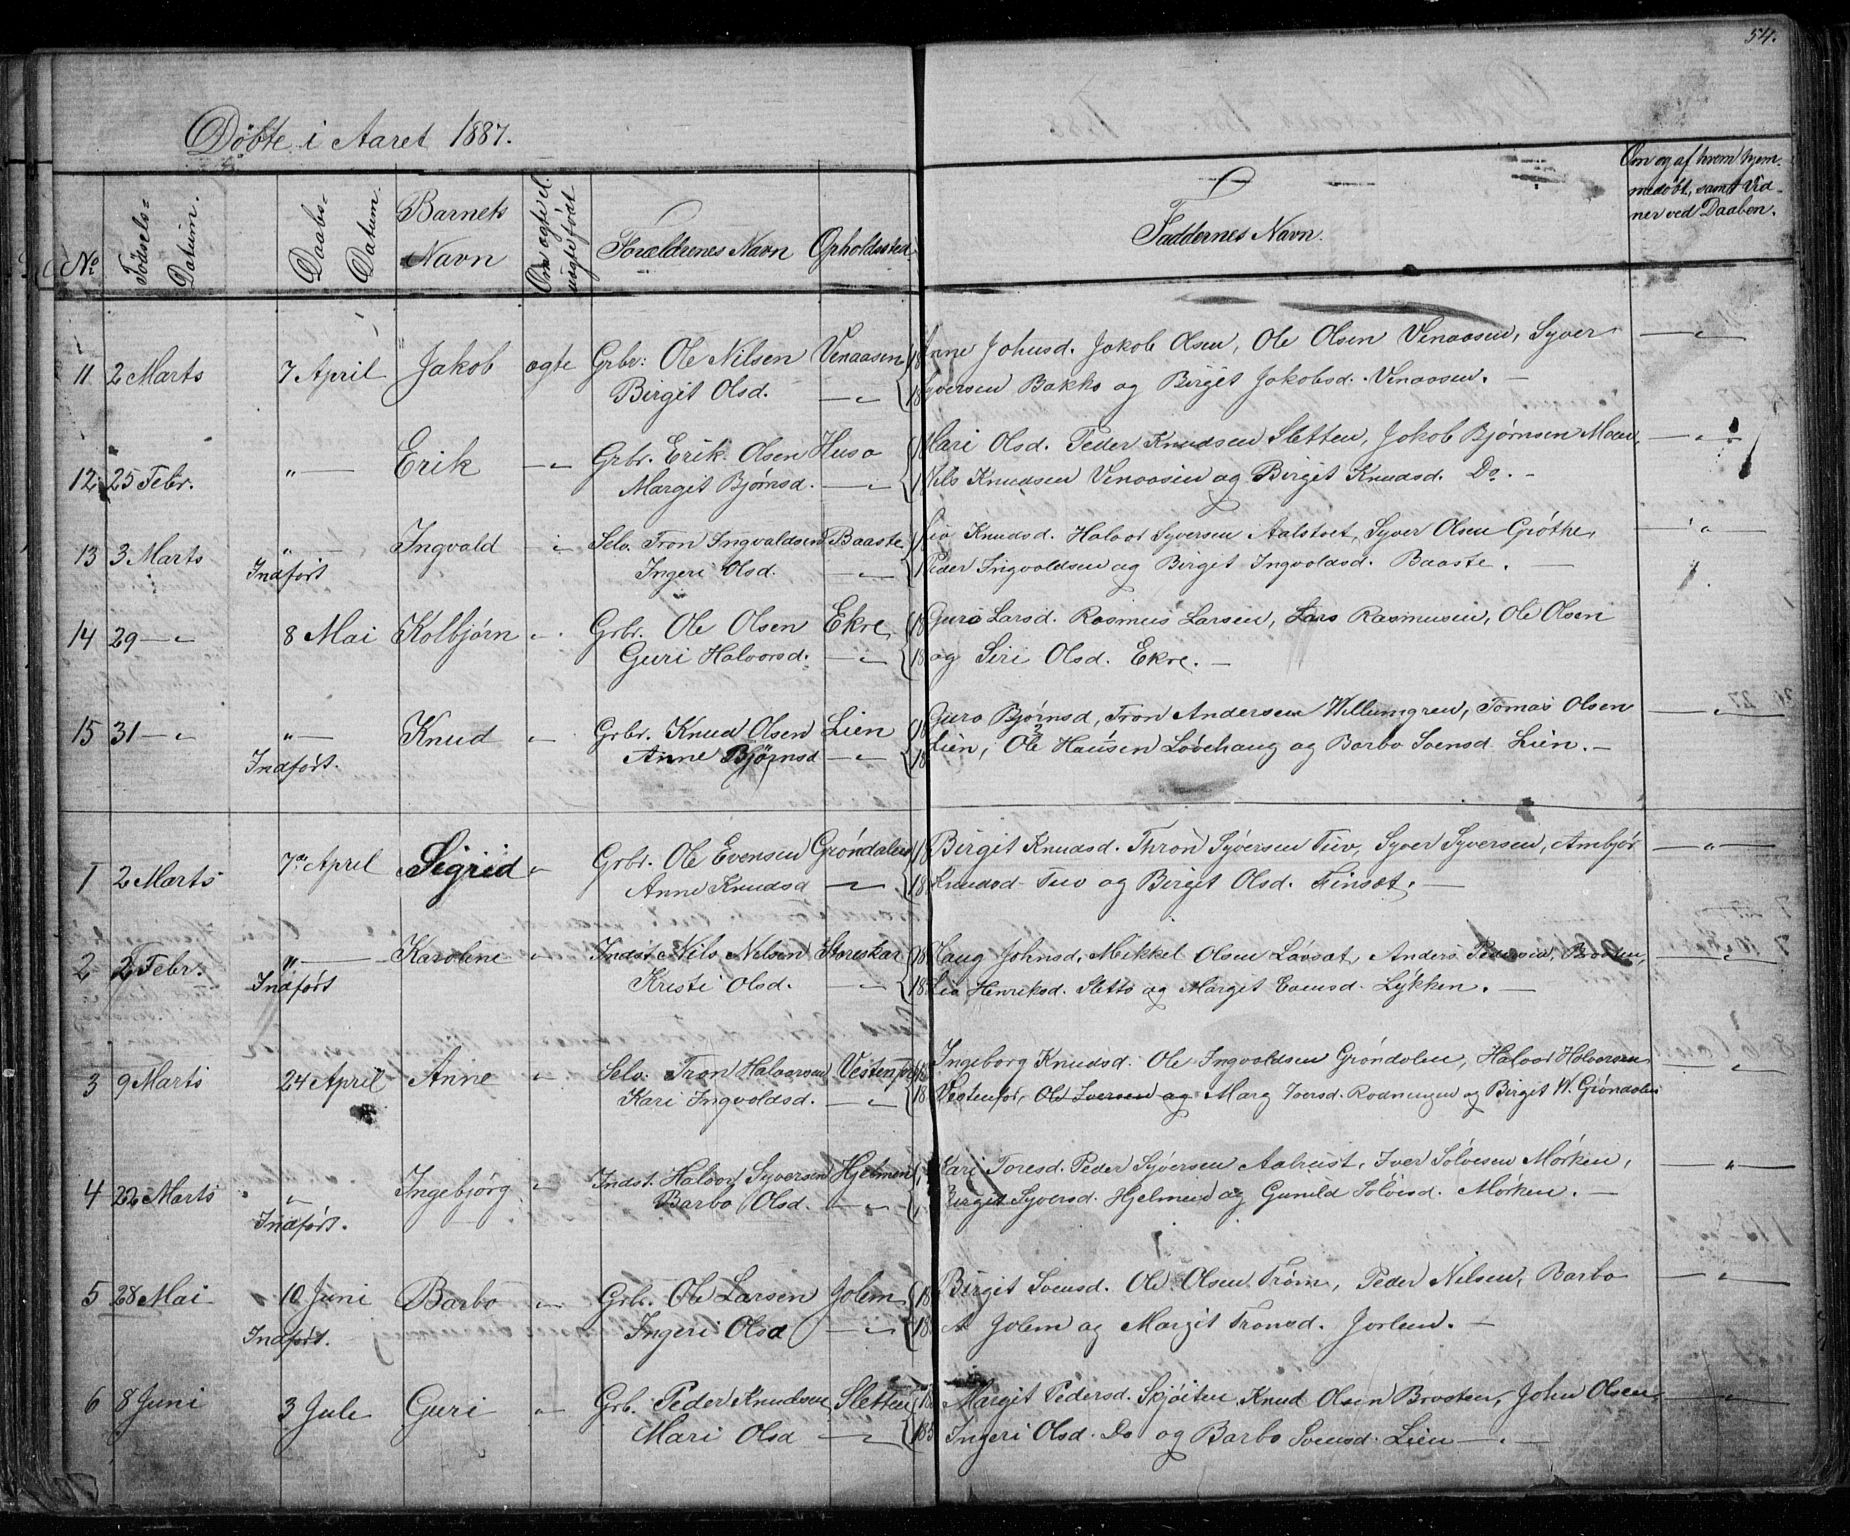 54.
Döbte i Aaret 1887.
No. Födsels-Datum. Daabs-Datum. Barnets Navn Om ægte el. uægte født Forældrenes Navn Opholdssted Faddernes Navn. Om og af hvem hjem-
medøbt, samt Vid-
ner ved Daaben.
11 2 Marts 7 April Jakob ægte Grbr: Ole Nilsen Venaasen Anne Johnsd. Jakob Olsen, Ole Olsen Venaasen, Syver — " —
Birgit Olsd. — " — Syversen Bakko og Birgit Jakobsd. Venaasen. —
12 25 Febr. " — Erik — " Grbr. Erik Olsen Huso Mari Olsd. Peder Knudsen Sletten, Jakob Bjørnsen Moen, — " —
Margit Bjørnsd. — " — Nils Knudsen Venaasen og Birgit Knudsd. Do. —
13 3 Marts " — Ingvald — " Selv. Tron Ingvaldsen Baaste Liv Knudsd. Halvor Syversen Aalstvet, Syver Olsen Gröthe, — " —
Indført Ingeri Olsd. — " — Peder Ingvoldsen og Birgit Ingvoldsd. Baaste. —
14 29 — " 8 Mai Kolbjørn " Grbr. Ole Olsen Ekre Guro Larsd. Rasmus Larsen, Lars Rasmusen, Ole Olsen
Guri Halvorsd. — " — og Siri Olsd. Ekre. —
15 31 — " " — Knud " Grbr. Knud Olsen Lien Guro Bjørnsd, Tron Andersen Willumgren, Tomas Olsen — " —
Indført. Anne Bjørnsd — " — Lien, Ole Hansen Lövehaug og Barbo Svensd. Lien. —
1 2 Marts 7de April Sigrid " Grbr. Ole Evensen Gröndalen Birgit Knudsd. Thron Syversen Tuv, Syver Syversen, Ambjør — " —
Anne Knudsd — " — Knudsd Tuv og Birgit Olsd. Finsæt. —
2 2 Febr. " — Karoline " Indst. Nils Nilsen Storeskar Haug Johnsd, Mikkel Olsen Lövsæt, Anders Pedersen, Braaten, — " —
Indført Kristi Olsd. — " — Liv Henriksd. Sletto og Margit Evensd. Lykken. —
3 9 Marts 24 April Anne " Selv. Tron Halvorsen Vestenfor Ingeborg Knudsd. Ole Ingvoldsen Gröndalen, Halvor Halvorsen — " —
Kari Ingvoldsd. — " — Vestenfor, Ole Iversen og Marg Iversd. Rodningen og Birget W. Gröndalen
4 22 Marts " Ingebjörg " Indst. Halvor Syversen Hjelmen Kari Toresd. Peder Syversen Aalrust, Iver Sölvesen Mörken, — " —
Indført. Barbo Olsd. — " — Birget Syversd. Hjelmen og Gunild Solvesd. Mörken. —
5 28 Mai 10 Juni Barbo " Grbr. Ole Larsen Jolem Birgit Svensd. Ole Olsen Tröim, Peder Nilsen, Barbo — " —
Indført. Ingeri Olsd — " — A Jolem og Margit Tronsd. Jorlem. —
6 8 Juni 3 Jule Guri " Grb. Peder Knudsen Sletten Margit Pedersd. Skjöiten, Knud Olsen Brosten, John Olsen, — " —
Mari Olsd — " — Ingeri Olsd. Do og Barbo Svensd. Lien — " —